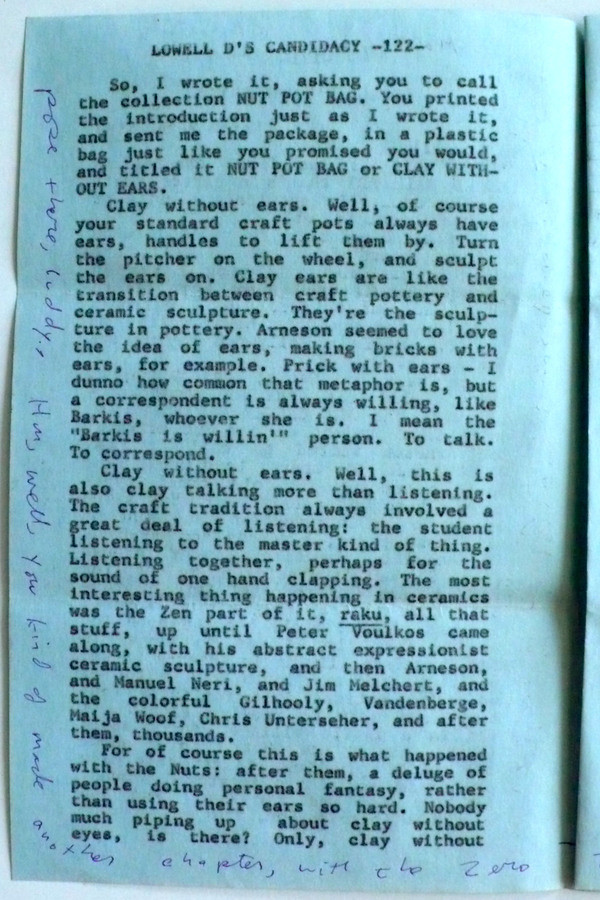 LOWELL D'S CANDIDACY -122-
So, I wrote it, asking you to call
the collection NUT POT BAG. You printed
the introduction just as I wrote it,
and sent me the package, in a plastic
bag just like you promised you would,
and titled it NUT POT BAG or CLAY WITH-
OUT EARS.
Clay without ears. Well, of course
your standard craft pots always have
ears, handles to lift them by. Turn
the pitcher on the wheel, and sculpt
the ears on. Clay ears are like the
transition between craft pottery and
ceramic sculpture. They're the sculp-
ture in pottery. Arneson seemed to love
the idea of ears, making bricks with
ears, for example. Prick with ears - I
dunno how common that metaphor is, but
a correspondent is always willing, like
Barkis, whoever she is. I mean the
"Barkis is willin'" person. To talk.
To correspond.
Clay without ears. Well, this is
also clay talking more than listening.
The craft tradition always involved a
great deal of listening: the student
listening to the master kind of thing.
Listening together, perhaps for the
sound of one hand clapping. The most
interesting thing happening in ceramics
was the Zen part of it, raku, all that
stuff, up until Peter Voulkos came
along, with his abstract expressionist
ceramic sculpture, and then Arneson,
and Manuel Neri, and Jim Melchert, and
the colorful Gilhooly, Vandenberge,
Maija Woof, Chris Unterseher, and after
them, thousands.
For of course this is what happened
with the Nuts: after them, a deluge of
people doing personal fantasy, rather
than using their ears so hard. Nobody
much piping up about clay without
eyes, is there? Only, clay without
there, buddy. Hm, well, you kind of made
another chapter, with the Zero